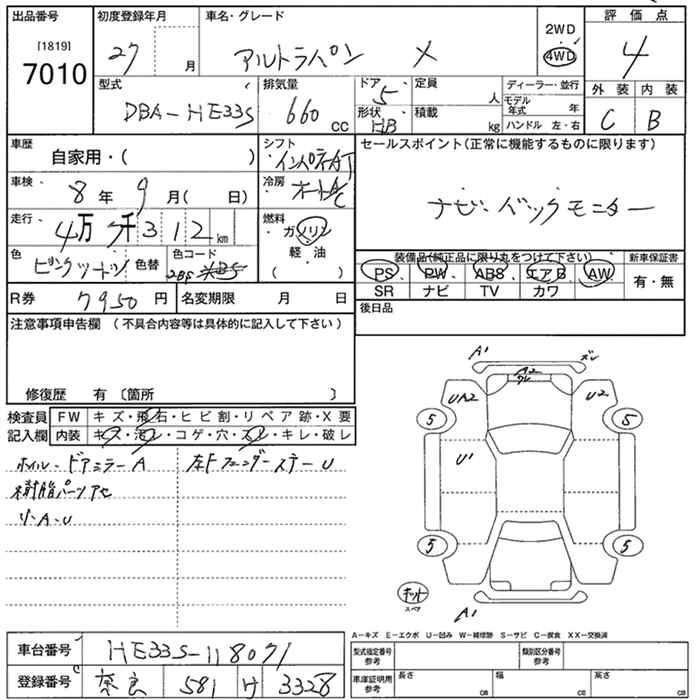 出品番号 初度登録年月 車名・グレード 2WD 評価点
[1819] 7010 27 月 アルトラパン X 4WD 4
型式 排気量 ドア 5 定員 人 ディーラー・並行 外装 内装
DBA-HE33S 660 CC 形状 HB 積載 kg モデル年式 年 C B
ハンドル 左・右
車歴 自家用・( ) シフト インパネAT セールスポイント(正常に機能するものに限ります)
車検 8年 9月( 日) 冷房 オートA/C ナビ・バックモニター
走行 4万 千312km 燃料 ガソリン
軽・油
( )
色 ピンクツートン 色替 色コード 2BS 装備品(純正品に限り丸をつけて下さい) 新車保証書
PS、PW、ABS、エアB、AW 有・無
SR ナビ TV カワ
R券 7950円 名変期限 月 日 後日品
注意事項申告欄 (不具合内容等は具体的に記入して下さい)
修復歴 有 〔箇所 〕
検査員 FW キズ・飛石・ヒビ割・リペア跡・X要
記入欄 内装 キズ・汚レ・コゲ・穴・スレ・キレ・破レ
ホイル・ドアミラーA 左Fフェンダーステー U
樹脂パーツアセ
リ・A・U
A1 ズレ
A2
ワレ
UA2 U2
5 5
U1
5 5
キット
スペア
A1
A-キズ E-エクボ U-凹み W-補修跡 S-サビ C-腐食 XX-交換済
車台番号 HE33S-118071 型式指定番号 参考 類別区分番号 参考
登録番号 奈良 581 け 3328 車庫証明用 参考 長さ cm 幅 cm 高さ cm